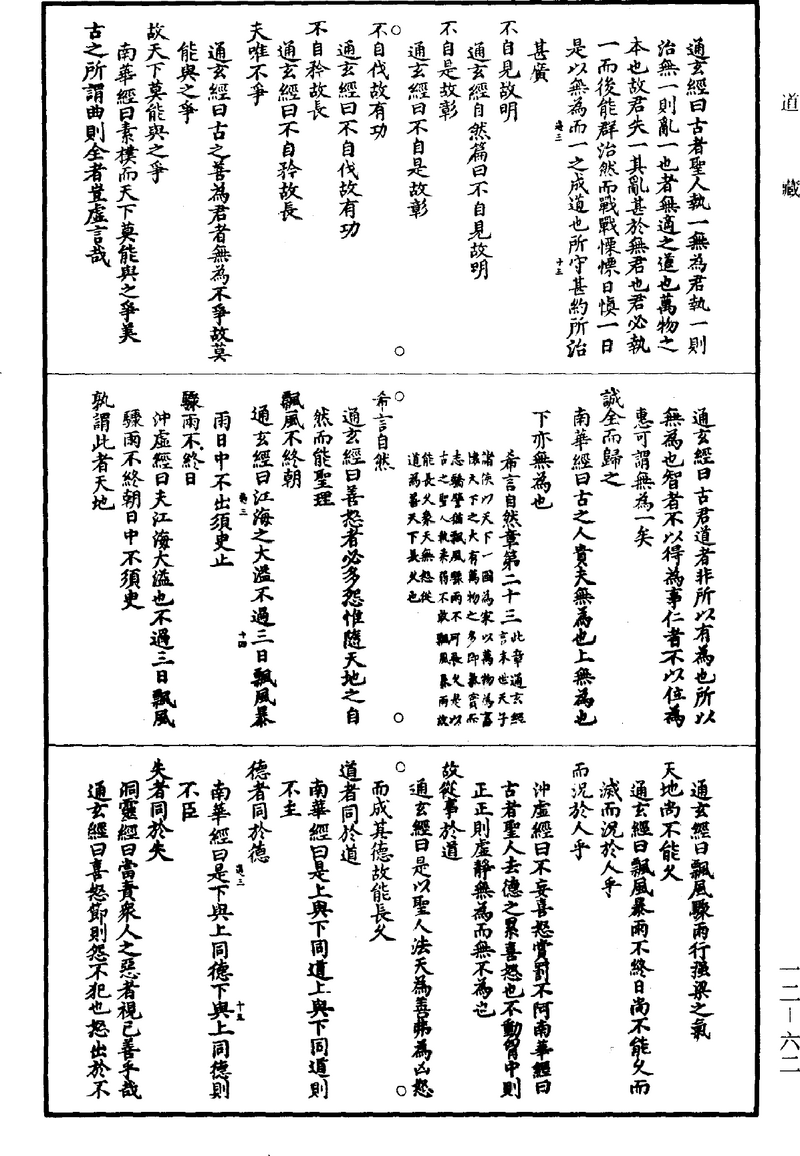 道藏
通玄經曰古者聖人執一無為君執一則
治無一則亂一也者無適之道也萬物之
本也故君失一其亂甚於無君也君必執
一而後能群治然而戰戰慄慄日慎一日
是以無為而一之成道也所守甚約所治
甚廣
不自見故明
通玄經自然篇曰不自見故明
不自是故彰
通玄經曰不自是故彰
不自伐故有功
通玄經曰不自伐故有功
不自矜故長
通玄經曰不自矜故長
夫唯不爭
通玄經曰古之善為君者無為不爭故莫
能與之爭
故天下莫能與之爭
南華經曰素樸而天下莫能與之爭美
古之所謂曲則全者豈虛言哉
通玄經曰古君道者非所以有為也所以
無為也智者不以得為事仁者不以位為
惠可謂無為一矣
誠全而歸之
南華經曰古之人貴夫無為也上無為也
下亦無為也
希言自然章第二十三
此章通玄經
言末世天子
諸侯以天下一國為家以萬物為畜
懷天下之大有萬物之多即氣實而
志驕譬猶飄風驟雨不可長久是以
古之聖人執柔弱不敢飄風暴雨故
能長久眾天無怨從
道為善天下長久也
希言自然
通玄經曰善怒者必多怨惟隨天地之自
然而能聖理
飄風不終朝
通玄經曰江海之大溢不過三日飄風暴
雨日中不出須臾止
驟雨不終日
沖虛經曰夫江海大溢也不過三日飄風
驟雨不終朝日中不須臾
孰謂此者天地
通玄經曰飄風驟雨行强梁之氣
天地尚不能久
通玄經曰飄風暴雨不終日尚不能久而
滅而況於人乎
而況於人乎
沖虛經曰不妄喜怒賞罰不阿南華經曰
古者聖人去德之累喜怒也不動胷中則
正正則虛靜無為而無不為也
故從事於道
通玄經曰是以聖人法天為善弗為凶怒
而成其德故能長久
道者同於道
南華經曰是上與下同道上與下同道則
不主
德者同於德
南華經曰是下與上同德下與上同德則
不臣
失者同於失
洞靈經曰當責衆人之惡者視己善乎哉
通玄經曰喜怒節則怨不犯也怒出於不
一二—六二